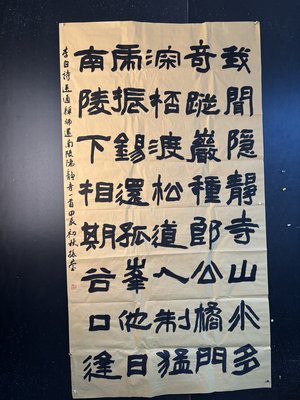 我聞隱靜寺山水多
奇蹤巖種郎公橘門
深桮渡松道人制猛
虎振錫還孤峯他日
南陵下相期谷口逢
李白詩送通禪師還南陵隱靜寺一首甲辰初秋